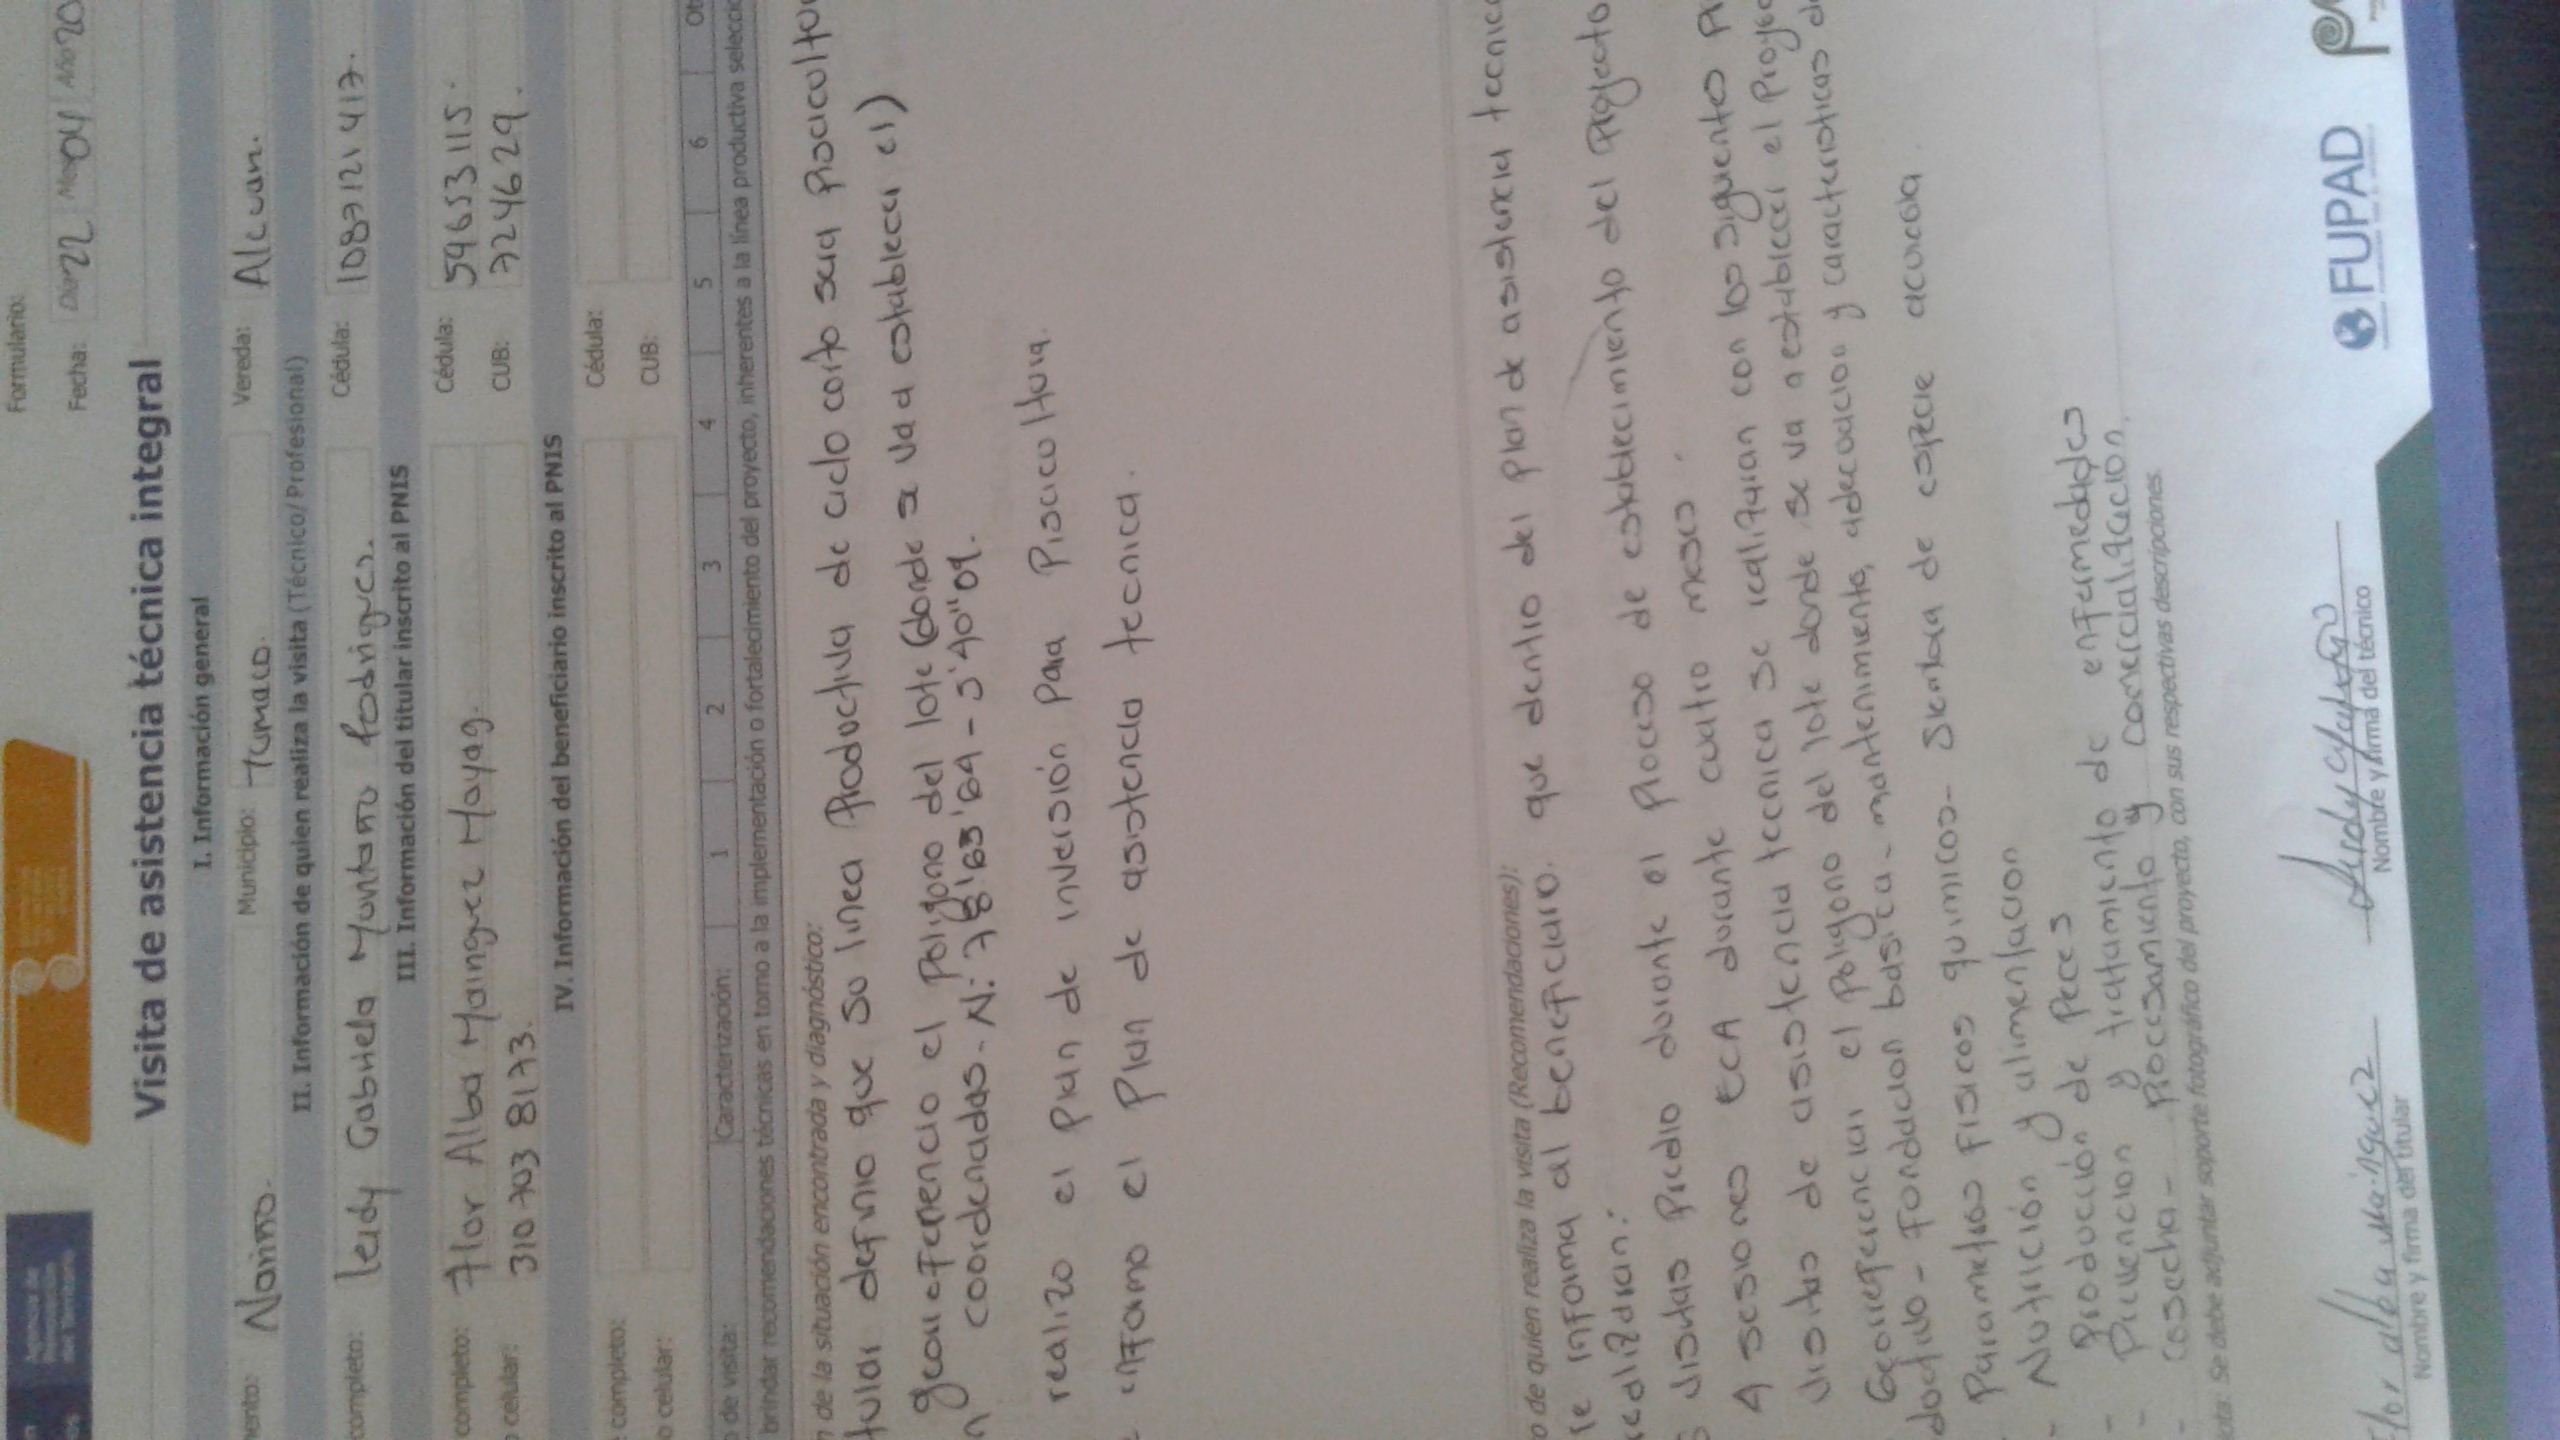 Formulario:
Fecha: Día 22 Mes 04 Año 20
Visita de asistencia técnica integral
I. Información general
mento: Nariño. Municipio: Tumaco. Vereda: Alcuan.
II. Información de quien realiza la visita (Técnico/Profesional)
completo: leidy Gabriela Montaño Rodrigues. Cédula: 1087121417.
III. Información del titular inscrito al PNIS
completo: Flor Alba Mainguez Mayag. Cédula: 59653115.
celular: 310 703 8173. CUB: 7224629.
IV. Información del beneficiario inscrito al PNIS
completo: Cédula:
o celular: CUB:
o de visita: Caracterización: 1 2 3 4 5 6 Ot
brindar recomendaciones técnicas en torno a la implementación o fortalecimiento del proyecto, inherentes a la línea productiva selecci
n de la situación encontrada y diagnóstico:
tular definio que su linea Productiva de ciclo corto sera Piscicultu
georeferencio el Poligono del lote (donde se va a establecer el)
n coordenadas - N: 78'63'64 - 3'40"09.
realizo el Plan de inversión para Piscicultura.
informo el Plan de asistencia tecnica.
o de quien realiza la visita (Recomendaciones):
le informa al beneficiario. que dentro del plan de asistencia tecnica
realizaran:
visitas Predio durante el Proceso de establecimiento del Proyecto
4 sesiones ECA durante cuatro meses.
visitas de asistencia tecnica se realizaran con los siguientes Pr
Georeferenciar el Poligono del lote donde se va a establecer el Proyec
ductivo - Fondacion basica - mantenimiento, adecuacion y caracteristicas d
Parametros Fisicos quimicos - Siembra de especie acuicola.
- Nutrición y alimentacion
- Producción de Peces
- Prevencion y tratamiento de enfermedades
- cosecha - Procesamiento y comercialización.
Nota: Se debe adjuntar soporte fotográfico del proyecto, con sus respectivas descripciones
Flor alba Mainguez
Nombre y firma del titular
Nombre y firma del técnico
FUPAD